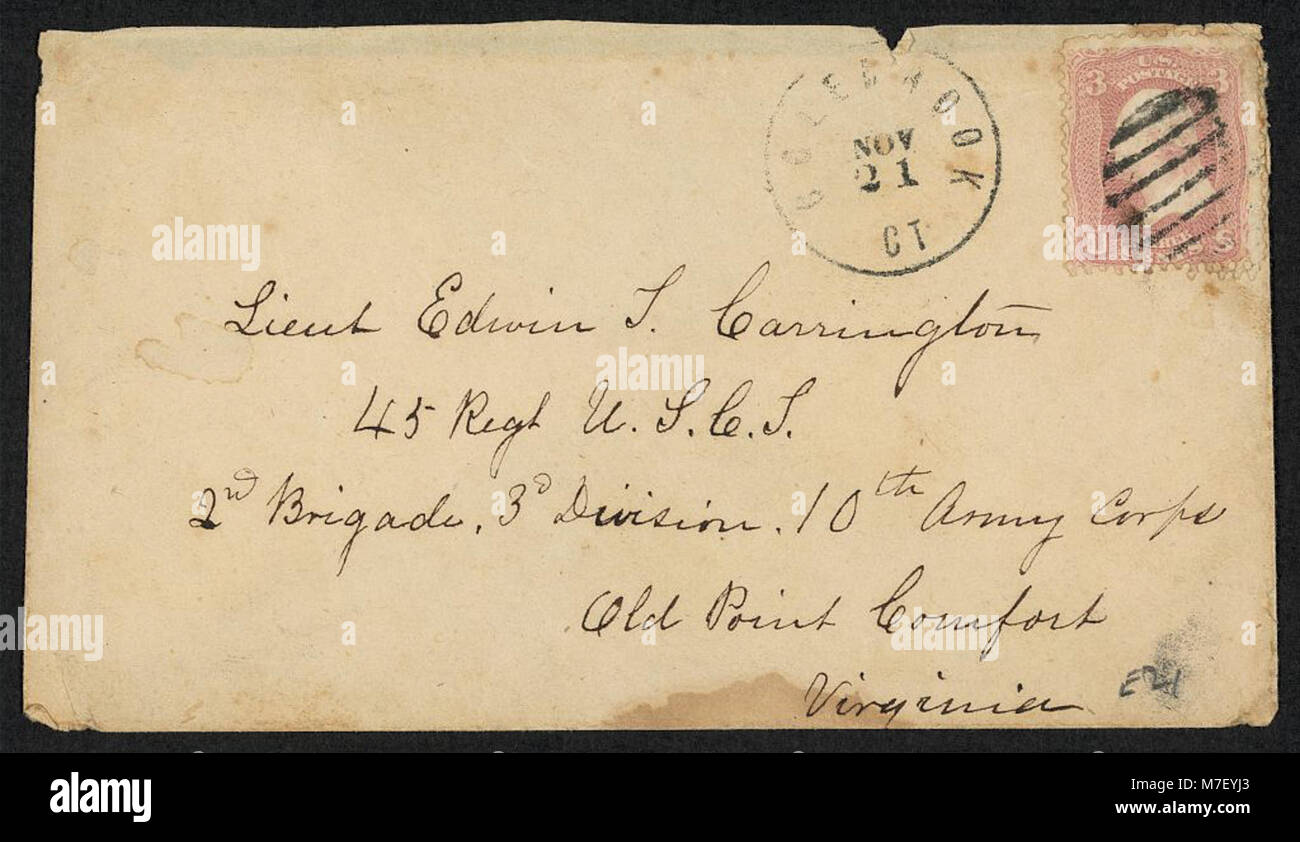 COLEBROOK
NOV
21
CT
3 U.S. POSTAGE 3
Lieut Edwin T. Carrington
45 Regt U.S.C.T.
2nd Brigade. 3d Division. 10th Army Corps
Old Point Comfort
Virginia
E21
alamy
alamy
Image ID: M7EYJ3
www.alamy.com